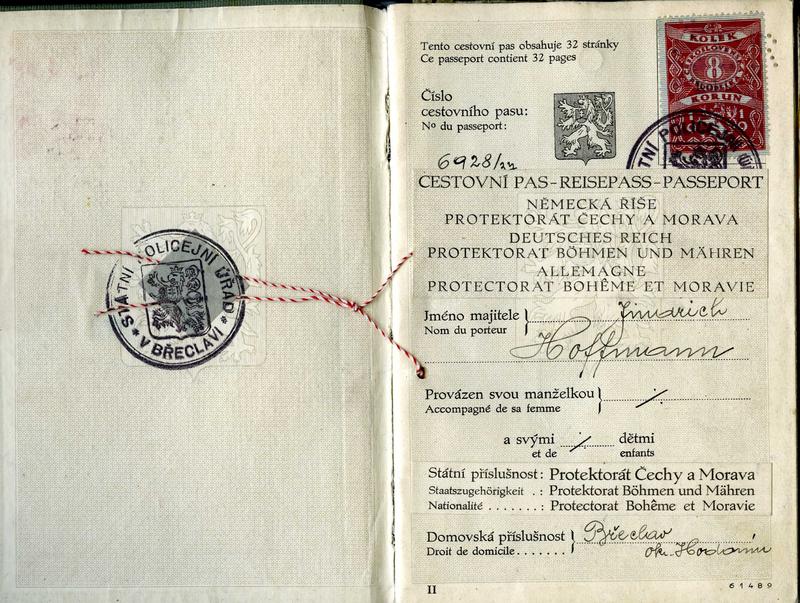 STÁTNÍ POLICEJNÍ ÚŘAD
* V BŘECLAVI *
Tento cestovní pas obsahuje 32 stránky
Ce passeport contient 32 pages
KOLEK
8
KORUN
Číslo
cestovního pasu:
No du passeport:
6928/
CESTOVNÍ PAS-REISEPASS-PASSEPORT
NĚMECKÁ ŘÍŠE
PROTEKTORÁT ČECHY A MORAVA
DEUTSCHES REICH
PROTEKTORAT BÖHMEN UND MÄHREN
ALLEMAGNE
PROTECTORAT BOHÊME ET MORAVIE
Jméno majitele
Nom du porteur
Jindrich
Hoffmann
Provázen svou manželkou
Accompagné de sa femme
a svými dětmi
et de enfants
Státní příslušnost: Protektorát Čechy a Morava
Staatszugehörigkeit .: Protektorat Böhmen und Mähren
Nationalité .......: Protectorat Bohême et Moravie
Domovská příslušnost
Droit de domicile.......
Břeclav
okr. Hodonín
II
61489